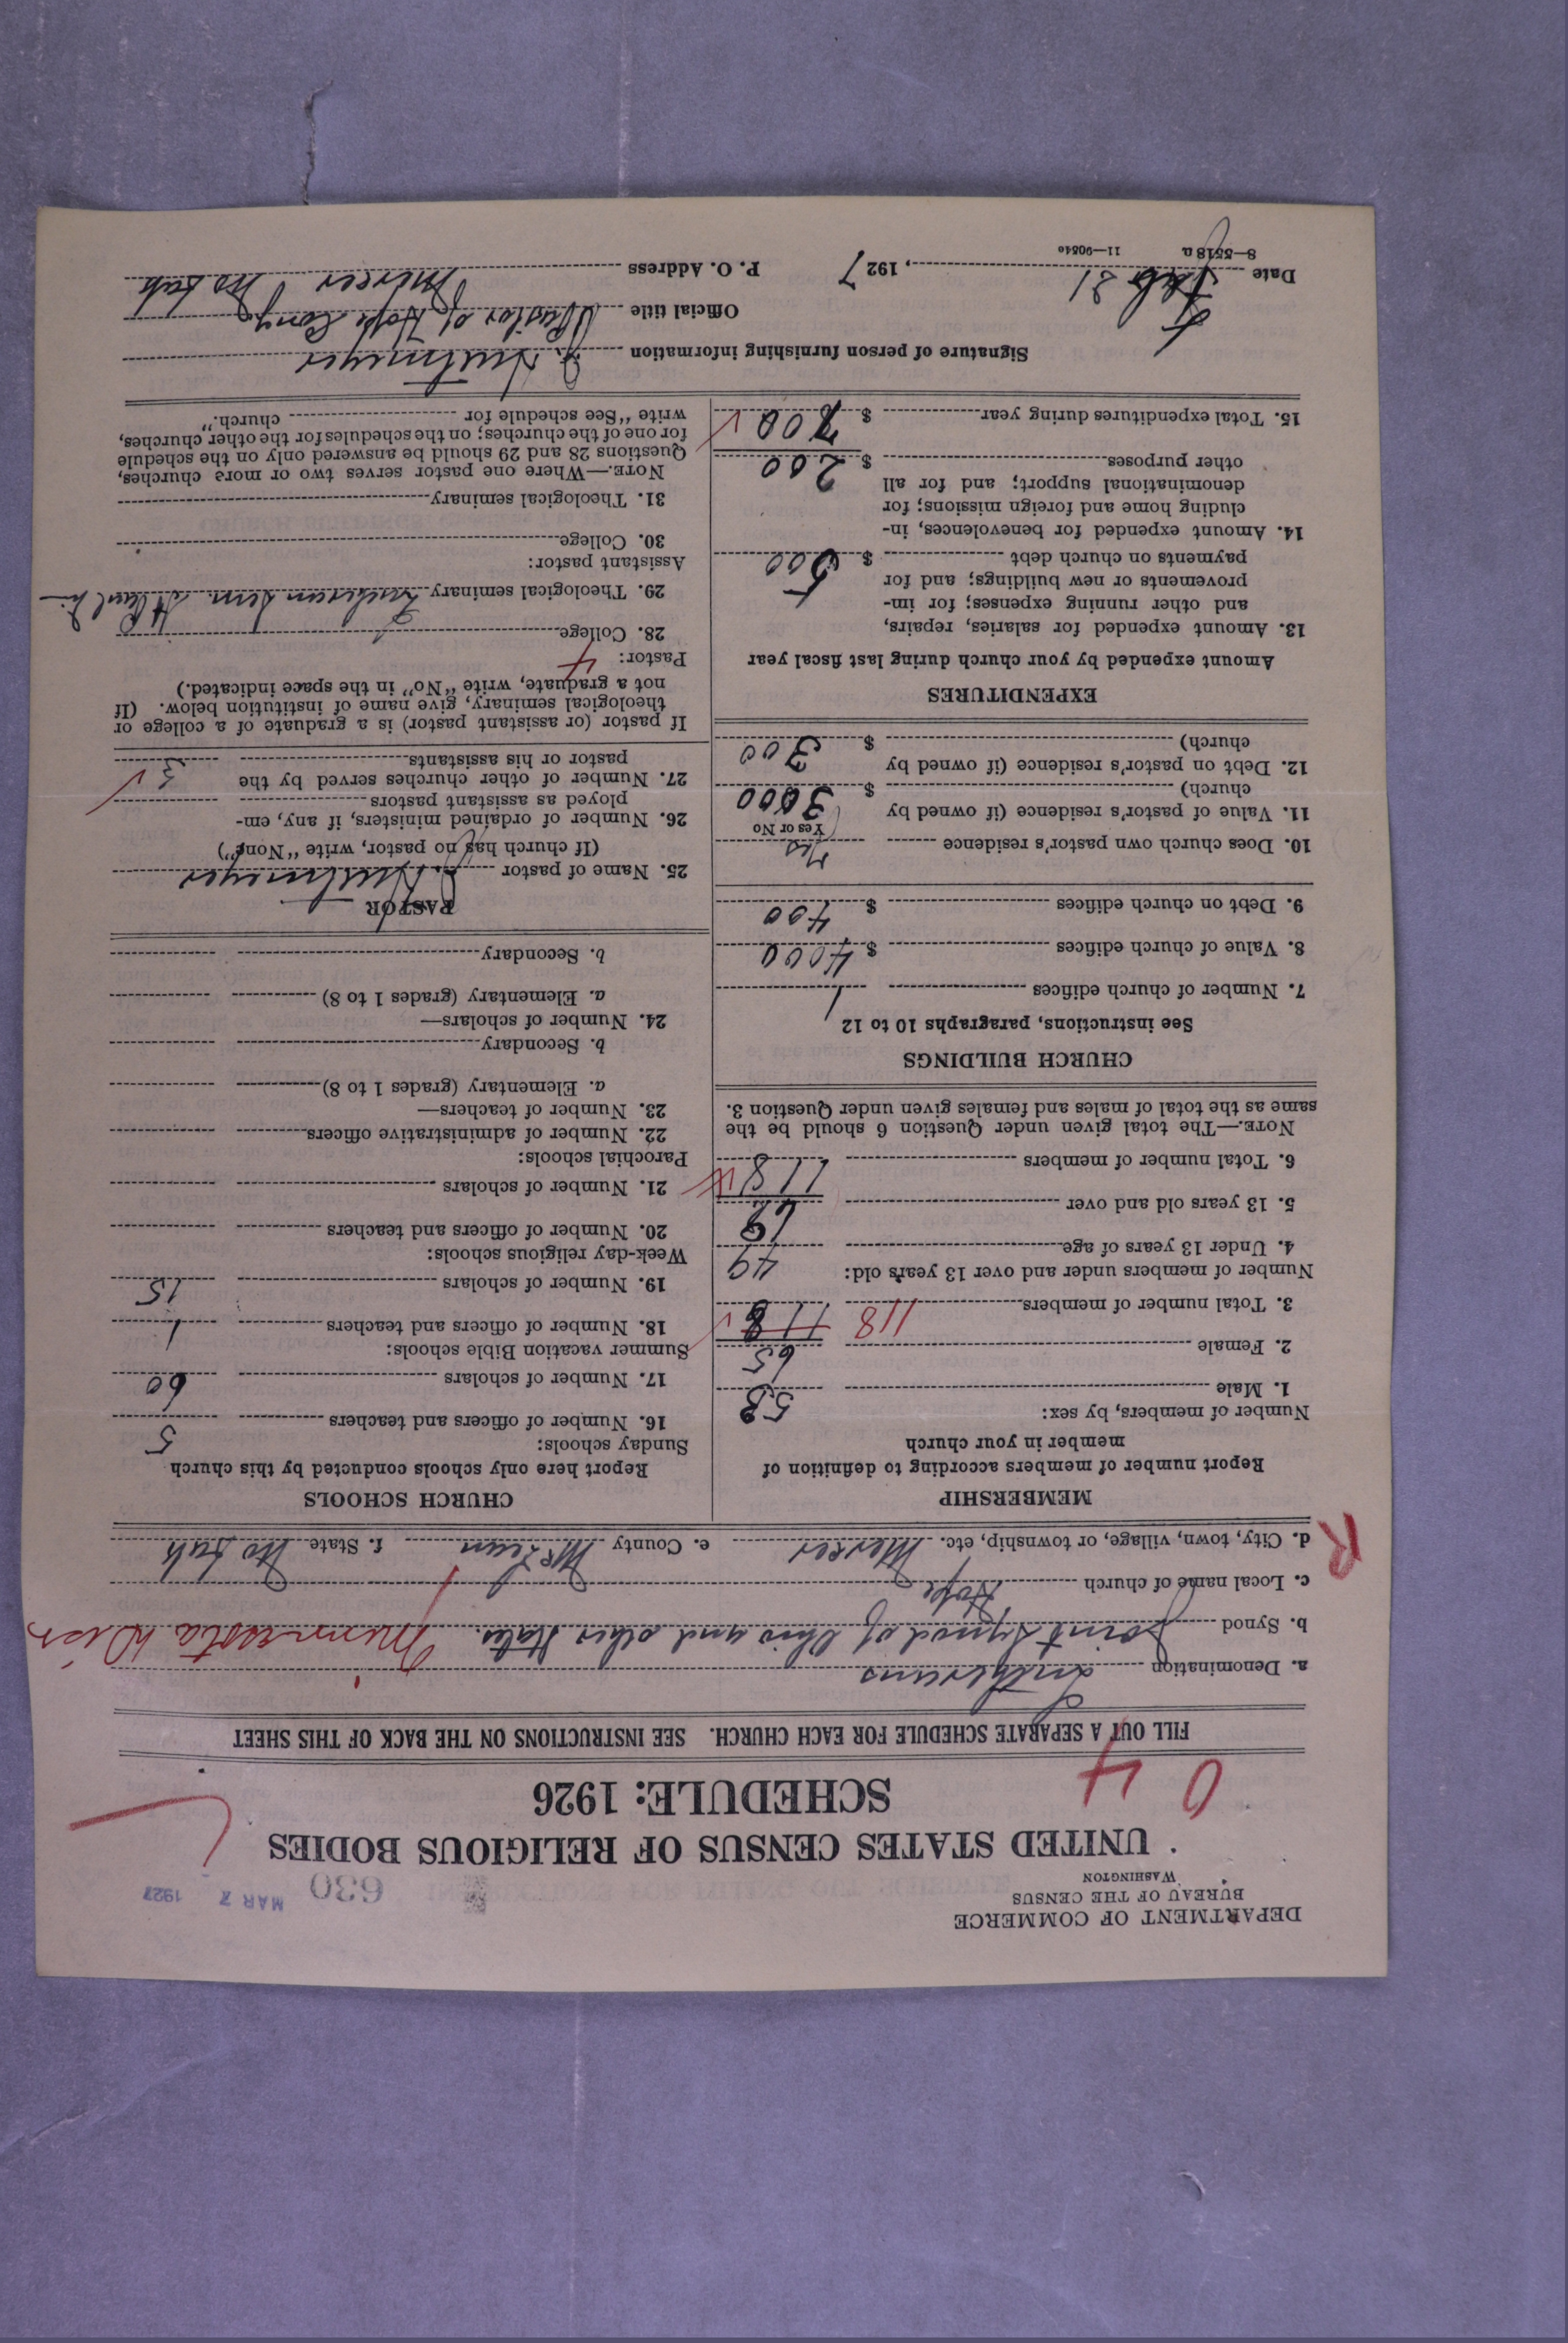 DEPARTMENT OF COMMERCE
BUREAU OF THE CENSUS
WASHINGTON
630 MAR 7 1927
UNITED STATES CENSUS OF RELIGIOUS BODIES
SCHEDULE: 1926
0 4
FILL OUT A SEPARATE SCHEDULE FOR EACH CHURCH. SEE INSTRUCTIONS ON THE BACK OF THIS SHEET
a. Denomination Lutherans
b. Synod Joint Synod of Ohio and other States. Minnesota Dist
c. Local name of church Hope
d. City, town, village, or township, etc. Mercer e. County McLean f. State No Dak
R
MEMBERSHIP
Report number of members according to definition of
member in your church
Number of members, by sex:
1. Male 53
2. Female 65
3. Total number of members 118 118
Number of members under and over 13 years old:
4. Under 13 years of age 49
5. 13 years old and over 69
6. Total number of members 118
NOTE.—The total given under Question 6 should be the
same as the total of males and females given under Question 3.
CHURCH BUILDINGS
See instructions, paragraphs 10 to 12
7. Number of church edifices 1
8. Value of church edifices $ 4000
9. Debt on church edifices $ 400
10. Does church own pastor's residence Yes
Yes or No
11. Value of pastor's residence (if owned by
church) $ 3000
12. Debt on pastor's residence (if owned by
church) $ 300
EXPENDITURES
Amount expended by your church during last fiscal year
13. Amount expended for salaries, repairs,
and other running expenses; for im-
provements or new buildings; and for
payments on church debt $ 500
14. Amount expended for benevolences, in-
cluding home and foreign missions; for
denominational support; and for all
other purposes $ 200
15. Total expenditures during year $ 700
CHURCH SCHOOLS
Report here only schools conducted by this church
Sunday schools:
16. Number of officers and teachers 5
17. Number of scholars 60
Summer vacation Bible schools:
18. Number of officers and teachers 1
19. Number of scholars 15
Week-day religious schools:
20. Number of officers and teachers
21. Number of scholars
Parochial schools:
22. Number of administrative officers
23. Number of teachers—
a. Elementary (grades 1 to 8)
b. Secondary
24. Number of scholars—
a. Elementary (grades 1 to 8)
b. Secondary
PASTOR
25. Name of pastor
(If church has no pastor, write "None")
26. Number of ordained ministers, if any, em-
ployed as assistant pastors
27. Number of other churches served by the
pastor or his assistants 3
If pastor (or assistant pastor) is a graduate of a college or
theological seminary, give name of institution below. (If
not a graduate, write "No" in the space indicated.)
Pastor: 4
28. College
29. Theological seminary Lutheran Sem St Paul
Assistant pastor:
30. College
31. Theological seminary
NOTE.—Where one pastor serves two or more churches,
Questions 28 and 29 should be answered only on the schedule
for one of the churches; on the schedules for the other churches,
write "See schedule for church."
Signature of person furnishing information
Official title Pastor of Hope Cong
Date Feb 21, 1927 P. O. Address Mercer No Dak
8—5518a 11—9054o